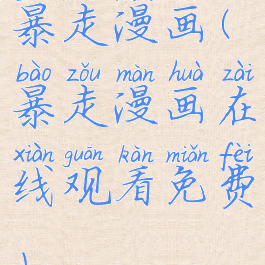 暴走漫画(
bào zǒu màn huà zài
暴走漫画在
xiàn guān kàn miǎn fèi
线观看免费
)